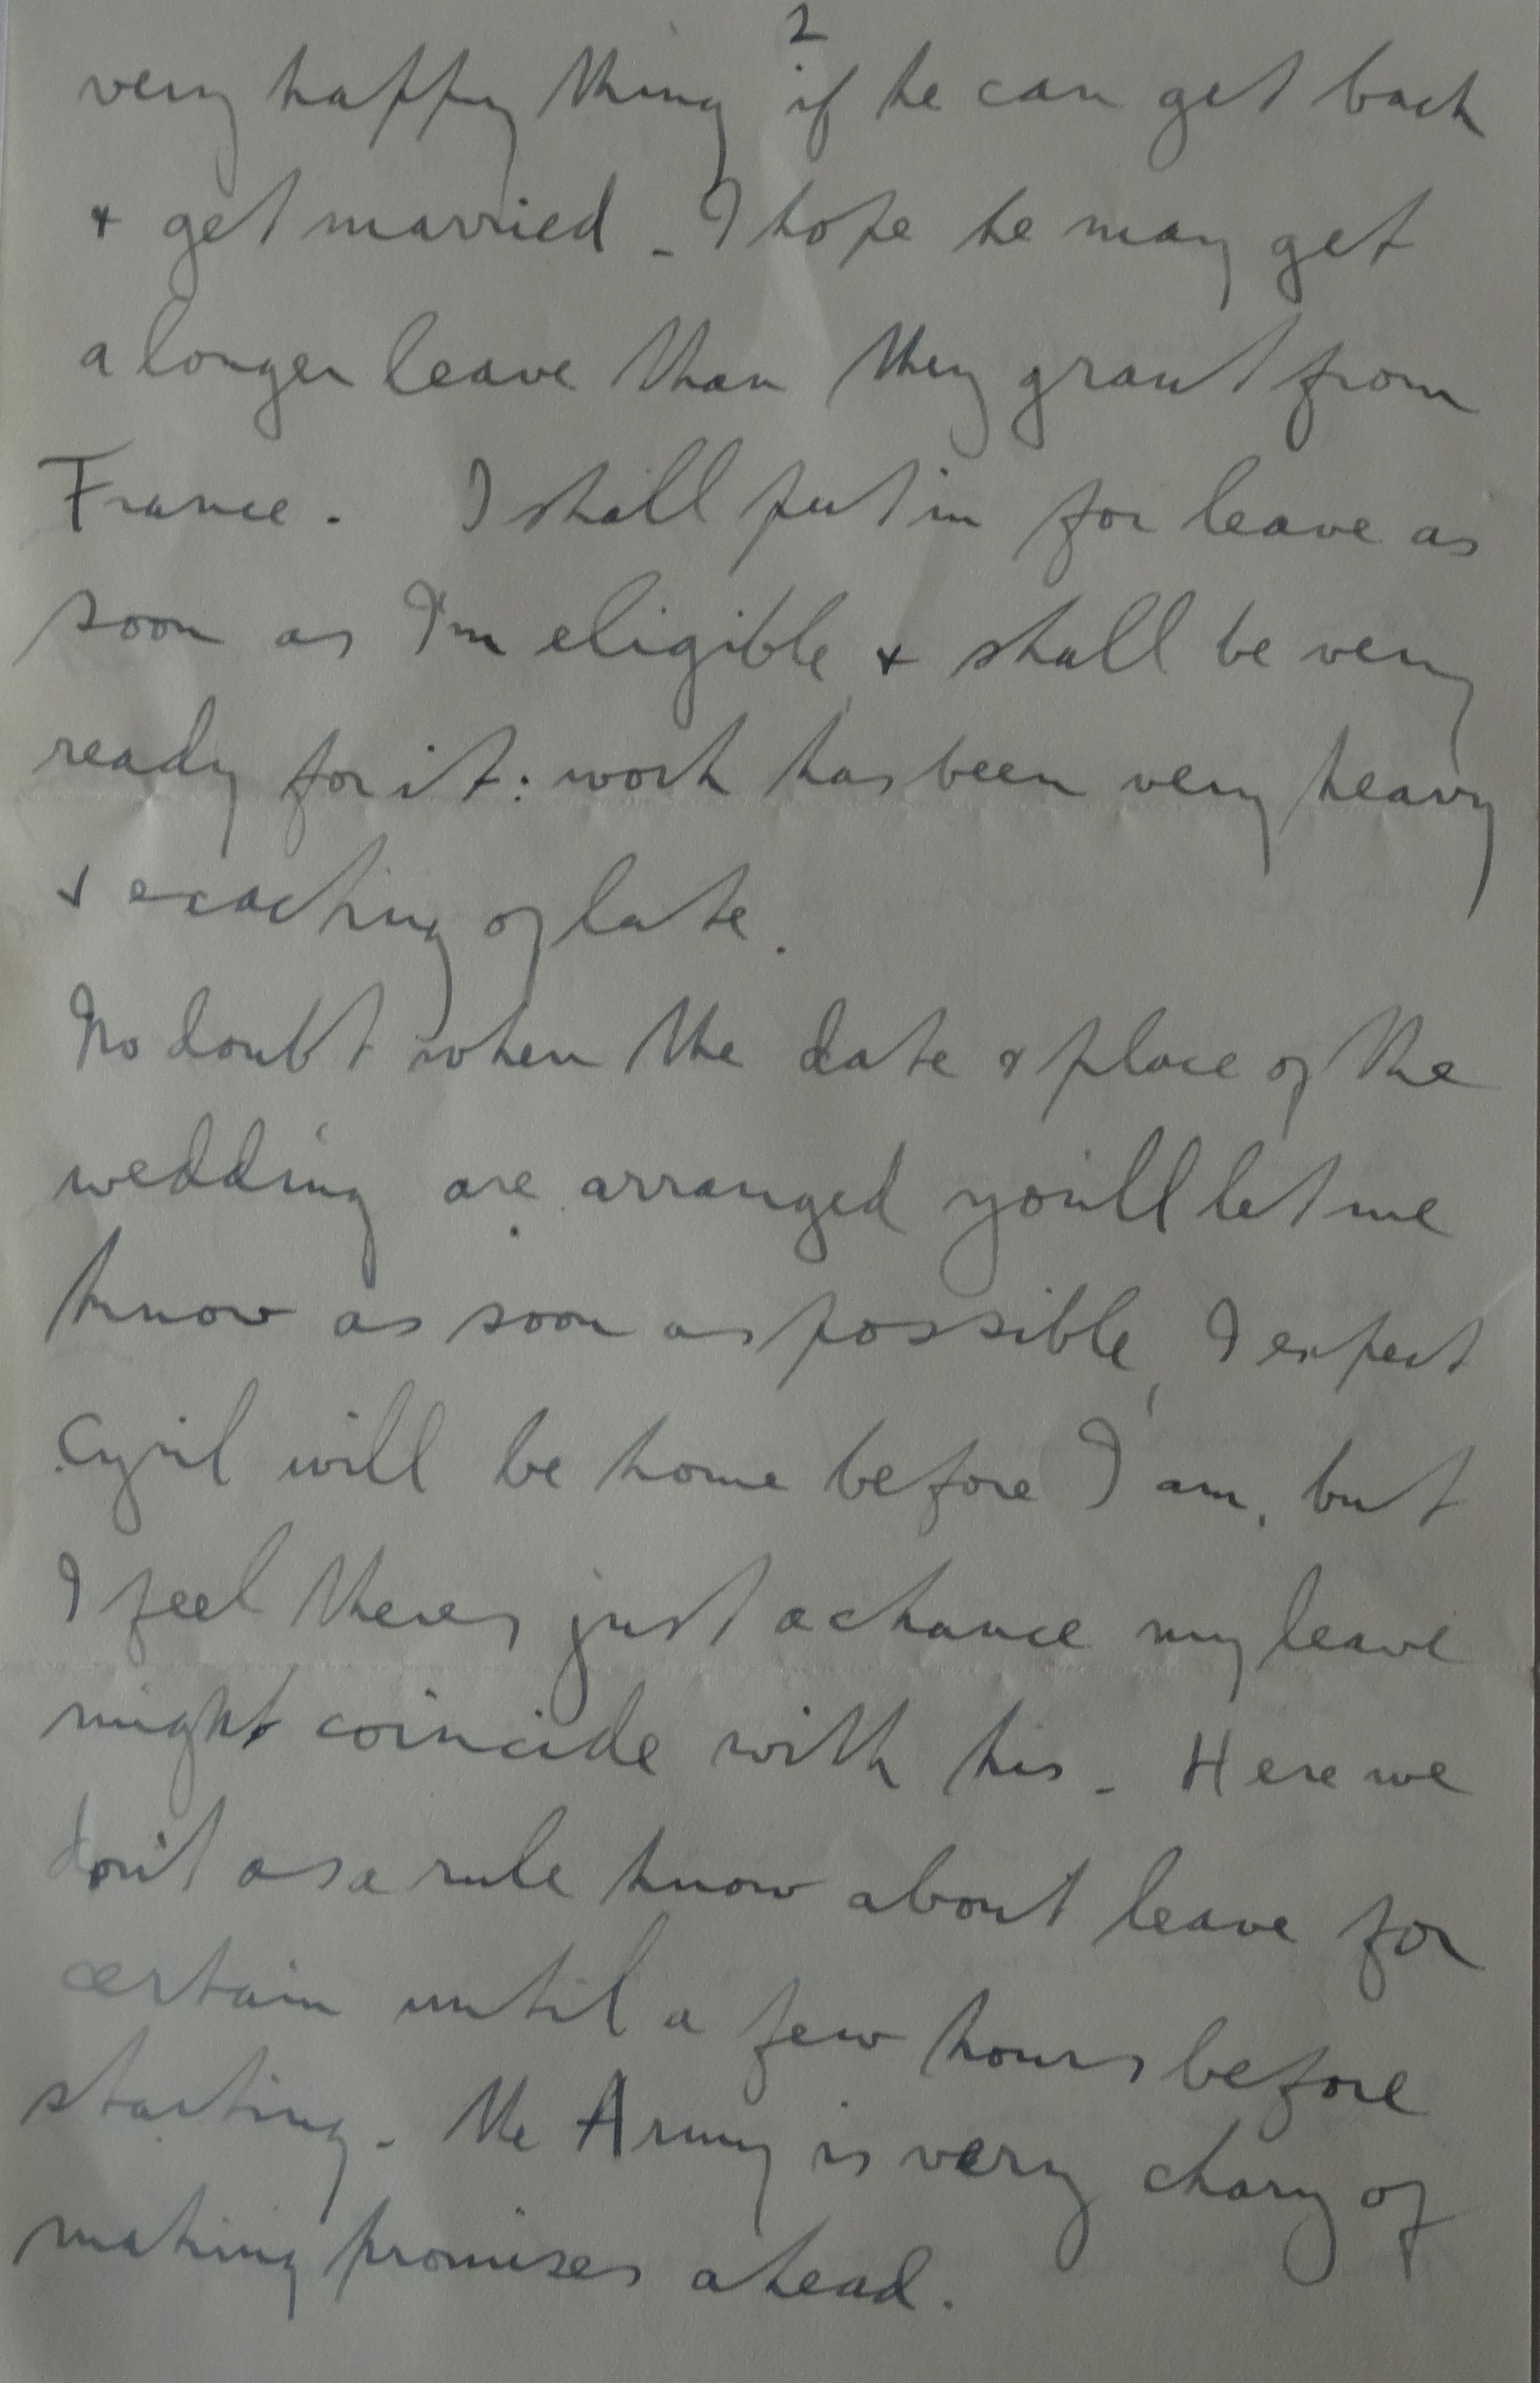 2
very happy thing if he can get back
& get married - I hope he may get
a longer leave than they grant from
France. I shall put in for leave as
soon as I'm eligible, & shall be very
ready for it: work has been very heavy
& exacting of late.
No doubt when the date & place of the
wedding are arranged you'll let me
know as soon as possible, I expect
Cyril will be home before I am, but
I feel theres just a chance my leave
might coincide with his - Here we
don't as a rule know about leave for
certain until a few hours before
starting - the Army is very chary of
making promises ahead.